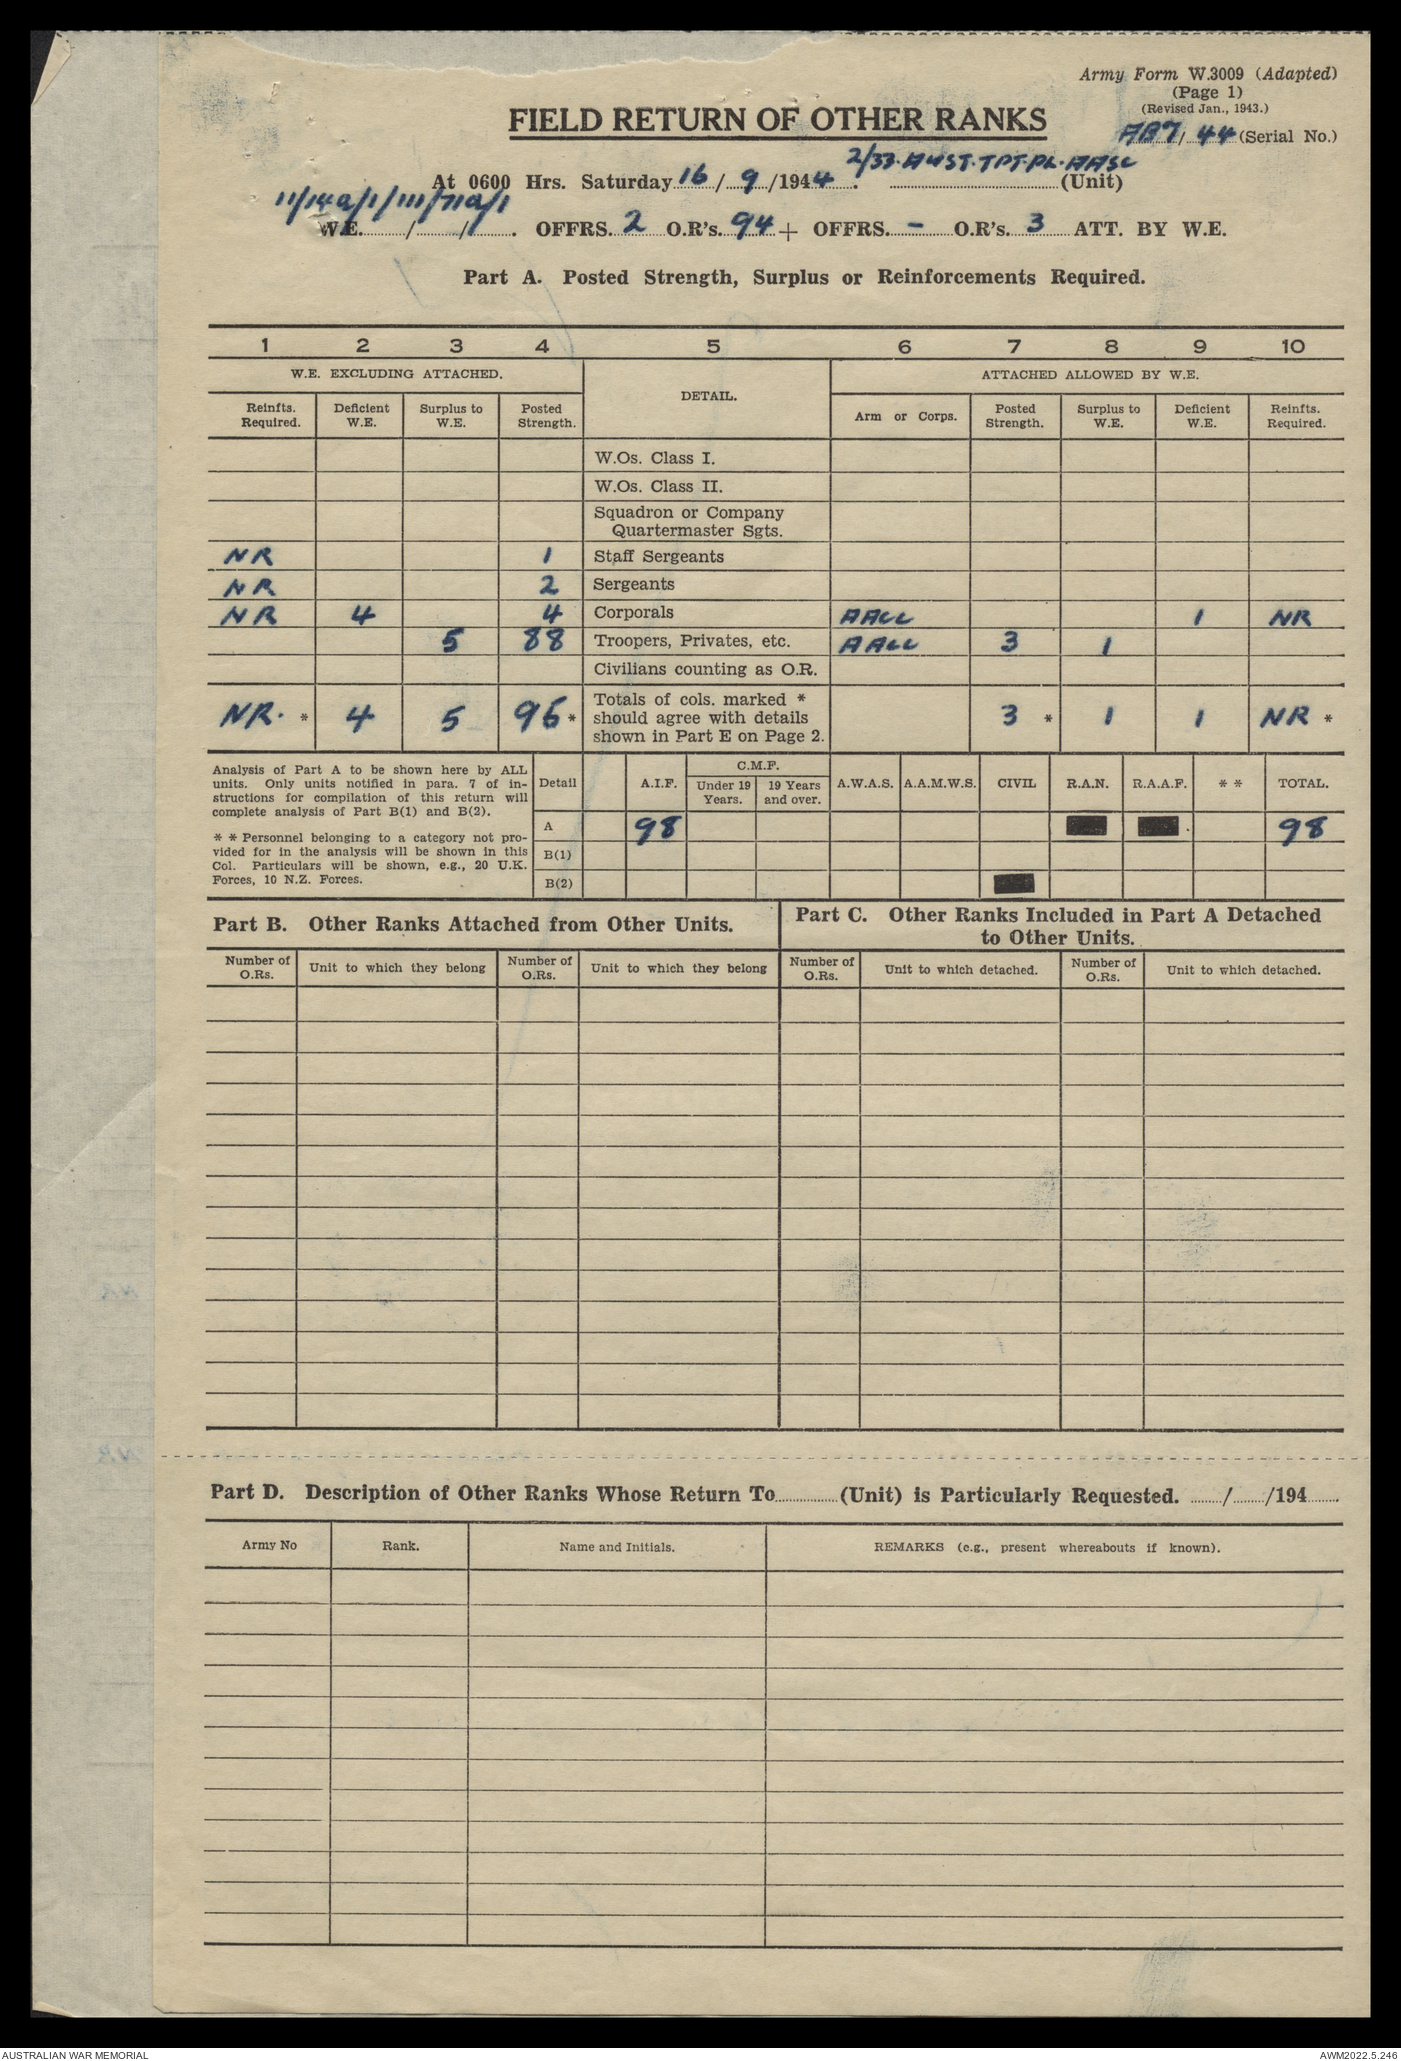 Army Form W.3009 (Adapted)
(Page 1)
(Revised Jan., 1943.)
FIELD RETURN OF OTHER RANKS
AB7/44 (Serial No.)
2/33 AUST. TPT. PL. AASC
At 0600 Hrs. Saturday 16/9/1944. (Unit)
W.E. / / . OFFRS. 2 O.R's. 94 + OFFRS. – O.R's. 3 ATT. BY W.E.
Part A. Posted Strength, Surplus or Reinforcements Required.
1 2 3 4 5 6 7 8 9 10
W.E. EXCLUDING ATTACHED. DETAIL. ATTACHED ALLOWED BY W.E.
Reinfts. Required. Deficient W.E. Surplus to W.E. Posted Strength. Arm or Corps. Posted Strength. Surplus to W.E. Deficient W.E. Reinfts. Required.
W.Os. Class I.
W.Os. Class II.
Squadron or Company
Quartermaster Sgts.
NR 1 Staff Sergeants
NR 2 Sergeants
NR 4 4 Corporals AACC 1 NR
5 88 Troopers, Privates, etc. AACC 3 1
Civilians counting as O.R.
NR. * 4 5 96 * Totals of cols. marked * should agree with details shown in Part E on Page 2. 3 * 1 1 NR *
Analysis of Part A to be shown here by ALL
units. Only units notified in para. 7 of in-
structions for compilation of this return will
complete analysis of Part B(1) and B(2).
* * Personnel belonging to a category not pro-
vided for in the analysis will be shown in this
Col. Particulars will be shown, e.g., 20 U.K.
Forces, 10 N.Z. Forces.
Detail A.I.F. C.M.F. Under 19 Years. 19 Years and over. A.W.A.S. A.A.M.W.S. CIVIL R.A.N. R.A.A.F. * * TOTAL.
A 98 98
B(1)
B(2)
Part B. Other Ranks Attached from Other Units.
Part C. Other Ranks Included in Part A Detached
to Other Units.
Number of O.Rs. Unit to which they belong Number of O.Rs. Unit to which they belong Number of O.Rs. Unit to which detached. Number of O.Rs. Unit to which detached.
Part D. Description of Other Ranks Whose Return To (Unit) is Particularly Requested. / /194 .
Army No Rank. Name and Initials. REMARKS (e.g., present whereabouts if known).
AUSTRALIAN WAR MEMORIAL
AWM2022.5.246